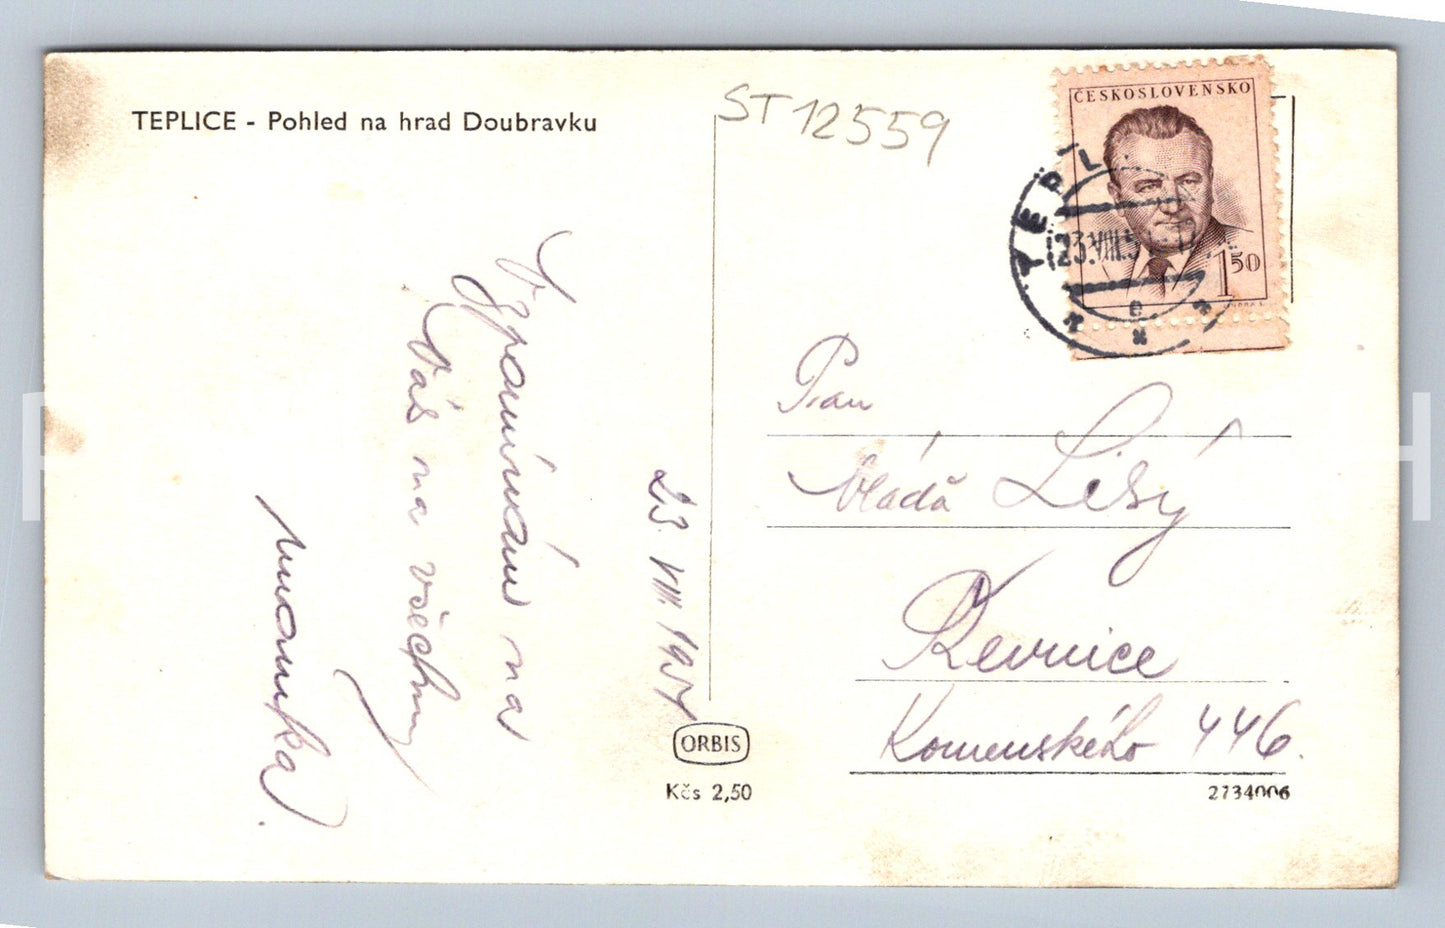 TEPLICE - Pohled na hrad Doubravku
ST 12559
ČESKOSLOVENSKO
1 50
TEPLI
23.VIII.5
e
Vzpomínám na
Vás na všechny
23. VIII. 195
Pan
Vláďa Lisý
Řevnice
Komenského 446.
ORBIS
Kčs 2,50
2734006